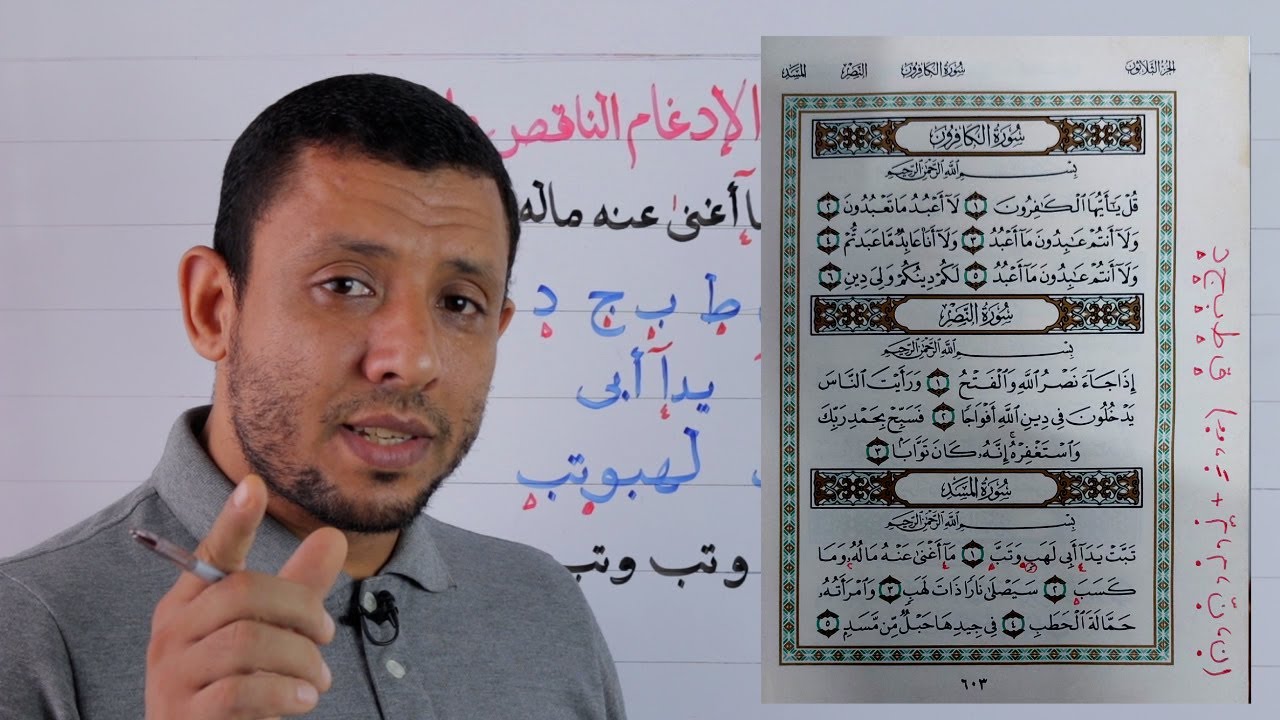 الإدغام الناقص
أغنىٰ عنه ماله
ط ب ج د
يدآ أبى
لهبوتب
وتب وتب
الجزء الثلاثون سورة الكافرون النصر المسد
سُورَةُ الكافِرُون
بِسْمِ اللَّهِ الرَّحْمَٰنِ الرَّحِيمِ
قُلْ يَـٰٓأَيُّهَا ٱلْكَـٰفِرُونَ ١ لَآ أَعْبُدُ مَا تَعْبُدُونَ ٢
وَلَآ أَنتُمْ عَـٰبِدُونَ مَآ أَعْبُدُ ٣ وَلَآ أَنَا۠ عَابِدٌ مَّا عَبَدتُّمْ ٤
وَلَآ أَنتُمْ عَـٰبِدُونَ مَآ أَعْبُدُ ٥ لَكُمْ دِينُكُمْ وَلِيَ دِينِ ٦
سُورَةُ النَّصْر
بِسْمِ اللَّهِ الرَّحْمَٰنِ الرَّحِيمِ
إِذَا جَآءَ نَصْرُ ٱللَّهِ وَٱلْفَتْحُ ١ وَرَأَيْتَ ٱلنَّاسَ
يَدْخُلُونَ فِى دِينِ ٱللَّهِ أَفْوَاجًا ٢ فَسَبِّحْ بِحَمْدِ رَبِّكَ
وَٱسْتَغْفِرْهُ إِنَّهُۥ كَانَ تَوَّابًۢا ٣
سُورَةُ المَسَد
بِسْمِ اللَّهِ الرَّحْمَٰنِ الرَّحِيمِ
تَبَّتْ يَدَآ أَبِى لَهَبٍ وَتَبَّ ١ مَآ أَغْنَىٰ عَنْهُ مَالُهُۥ وَمَا
كَسَبَ ٢ سَيَصْلَىٰ نَارًا ذَاتَ لَهَبٍ ٣ وَٱمْرَأَتُهُۥ
حَمَّالَةَ ٱلْحَطَبِ ٤ فِى جِيدِهَا حَبْلٌ مِّن مَّسَدٍۭ ٥
٦٠٣
ق ط ب ج د